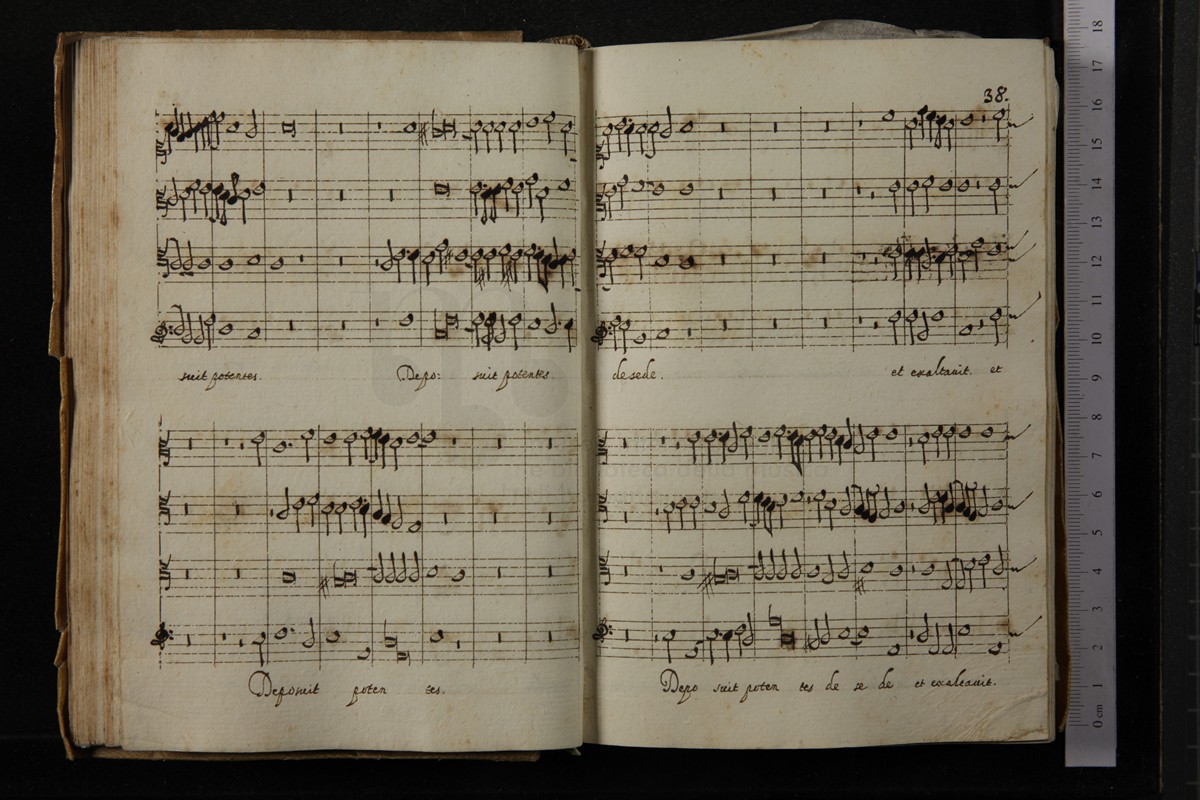 suit potentes. Depo: suit potentes
Deposuit poten tes.
38.
de sede. et exaltauit. et
Depo suit poten tes de se de et exaltauit.
18
17
16
15
14
13
12
11
10
9
8
7
6
5
4
3
2
1
0 cm